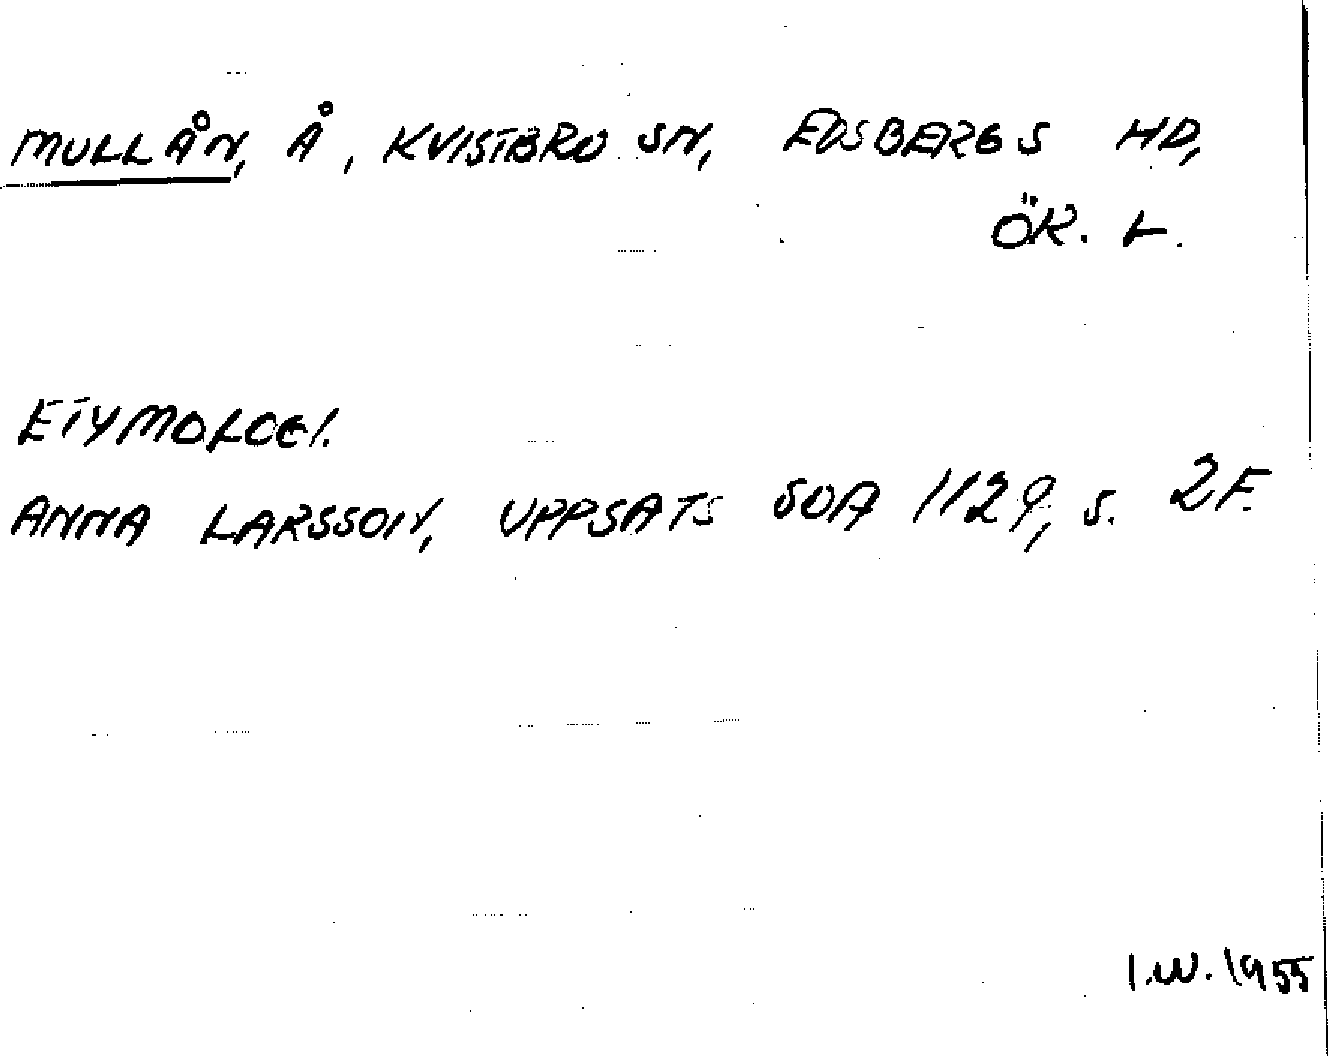 MULLÅN, Å, KVISTBRO SN, EDSBERGS HD,
ÖR. L.
ETYMOLOGI.
ANNA LARSSON, UPPSATS SOA 1129, S. 2F.
I.W. 1955